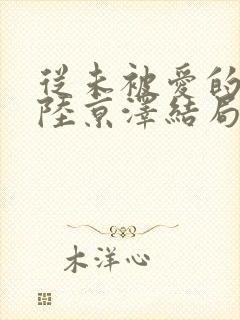 從未被愛的
陸京澤結局
木洋心